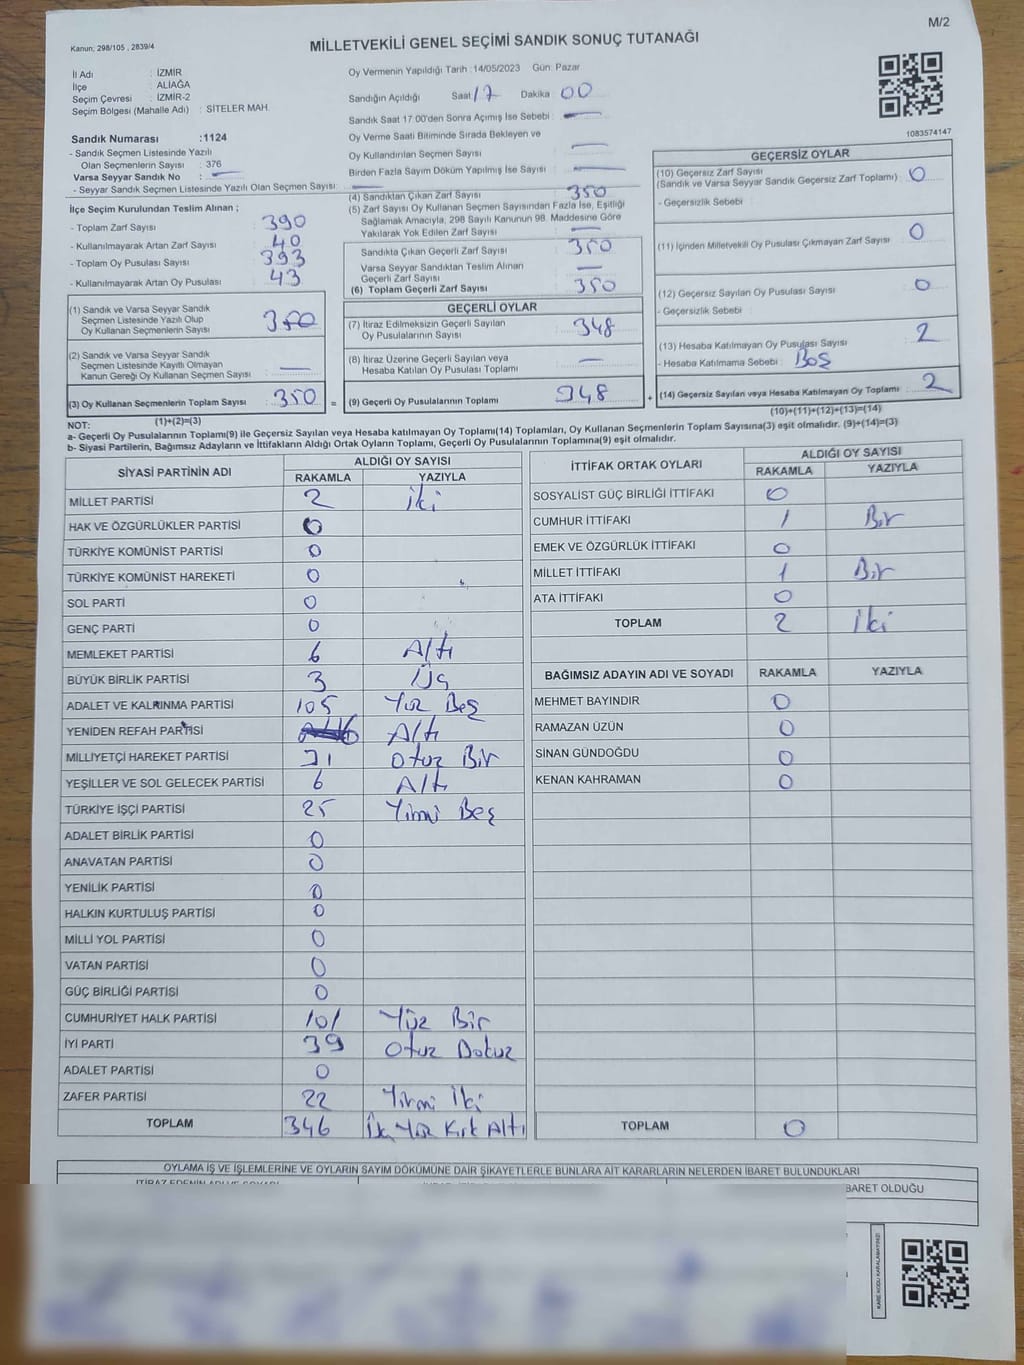 M/2
Kanun, 298/105 , 2839/4
MİLLETVEKİLİ GENEL SEÇİMİ SANDIK SONUÇ TUTANAĞI
İl Adı : İZMİR
İlçe : ALİAĞA
Seçim Çevresi : İZMİR-2
Seçim Bölgesi (Mahalle Adı) : SİTELER MAH.
Sandık Numarası :1124
- Sandık Seçmen Listesinde Yazılı
Olan Seçmenlerin Sayısı : 376
Varsa Seyyar Sandık No : —
- Seyyar Sandık Seçmen Listesinde Yazılı Olan Seçmen Sayısı: —
Oy Vermenin Yapıldığı Tarih :14/05/2023 Gün: Pazar
Sandığın Açıldığı Saat 17 Dakika 00
Sandık Saat 17:00'den Sonra Açımış İse Sebebi : —
Oy Verme Saati Bitiminde Sırada Bekleyen ve
Oy Kullandırılan Seçmen Sayısı —
Birden Fazla Sayım Döküm Yapılmış İse Sayısı : —
İlçe Seçim Kurulundan Teslim Alınan ;
- Toplam Zarf Sayısı : 390
- Kullanılmayarak Artan Zarf Sayısı : 40
- Toplam Oy Pusulası Sayısı : 393
- Kullanılmayarak Artan Oy Pusulası : 43
(1) Sandık ve Varsa Seyyar Sandık
Seçmen Listesinde Yazılı Olup
Oy Kullanan Seçmenlerin Sayısı : 350
(2) Sandık ve Varsa Seyyar Sandık
Seçmen Listesinde Kayıtlı Olmayan
Kanun Gereği Oy Kullanan Seçmen Sayısı : —
(3) Oy Kullanan Seçmenlerin Toplam Sayısı : 350
(1)+(2)=(3)
(4) Sandıktan Çıkan Zarf Sayısı : 350
(5) Zarf Sayısı Oy Kullanan Seçmen Sayısından Fazla İse, Eşitliği
Sağlamak Amacıyla, 298 Sayılı Kanunun 98. Maddesine Göre
Yakılarak Yok Edilen Zarf Sayısı : —
Sandıkta Çıkan Geçerli Zarf Sayısı : 350
Varsa Seyyar Sandıktan Teslim Alınan
Geçerli Zarf Sayısı : —
(6) Toplam Geçerli Zarf Sayısı : 350
GEÇERLİ OYLAR
(7) İtiraz Edilmeksizin Geçerli Sayılan
Oy Pusulalarının Sayısı : 348
(8) İtiraz Üzerine Geçerli Sayılan veya
Hesaba Katılan Oy Pusulası Toplamı : —
= (9) Geçerli Oy Pusulalarının Toplamı : 348
1083574147
GEÇERSİZ OYLAR
(10) Geçersiz Zarf Sayısı
(Sandık ve Varsa Seyyar Sandık Geçersiz Zarf Toplamı) : 0
- Geçersizlik Sebebi :
(11) İçinden Milletvekili Oy Pusulası Çıkmayan Zarf Sayısı : 0
(12) Geçersiz Sayılan Oy Pusulası Sayısı : 0
- Geçersizlik Sebebi :
(13) Hesaba Katılmayan Oy Pusulası Sayısı : 2
- Hesaba Katılmama Sebebi : Boş
+ (14) Geçersiz Sayılan veya Hesaba Katılmayan Oy Toplamı : 2
(10)+(11)+(12)+(13)=(14)
NOT:
a- Geçerli Oy Pusulalarının Toplamı(9) ile Geçersiz Sayılan veya Hesaba katılmayan Oy Toplamı(14) Toplamları, Oy Kullanan Seçmenlerin Toplam Sayısına(3) eşit olmalıdır. (9)+(14)=(3)
b- Siyasi Partilerin, Bağımsız Adayların ve İttifakların Aldığı Ortak Oyların Toplamı, Geçerli Oy Pusulalarının Toplamına(9) eşit olmalıdır.
SİYASİ PARTİNİN ADI ALDIĞI OY SAYISI
RAKAMLA YAZIYLA
MİLLET PARTİSİ 2 iki
HAK VE ÖZGÜRLÜKLER PARTİSİ 0
TÜRKİYE KOMÜNİST PARTİSİ 0
TÜRKİYE KOMÜNİST HAREKETİ 0
SOL PARTİ 0
GENÇ PARTİ 0
MEMLEKET PARTİSİ 6 Altı
BÜYÜK BİRLİK PARTİSİ 3 Üç
ADALET VE KALKINMA PARTİSİ 105 Yüz Beş
YENİDEN REFAH PARTİSİ 6 Altı
MİLLİYETÇİ HAREKET PARTİSİ 31 Otuz Bir
YEŞİLLER VE SOL GELECEK PARTİSİ 6 Altı
TÜRKİYE İŞÇİ PARTİSİ 25 Yirmi Beş
ADALET BİRLİK PARTİSİ 0
ANAVATAN PARTİSİ 0
YENİLİK PARTİSİ 0
HALKIN KURTULUŞ PARTİSİ 0
MİLLİ YOL PARTİSİ 0
VATAN PARTİSİ 0
GÜÇ BİRLİĞİ PARTİSİ 0
CUMHURİYET HALK PARTİSİ 101 Yüz Bir
İYİ PARTİ 39 Otuz Dokuz
ADALET PARTİSİ 0
ZAFER PARTİSİ 22 Yirmi İki
TOPLAM 346 Üç Yüz Kırk Altı
İTTİFAK ORTAK OYLARI ALDIĞI OY SAYISI
RAKAMLA YAZIYLA
SOSYALİST GÜÇ BİRLİĞİ İTTİFAKI 0
CUMHUR İTTİFAKI 1 Bir
EMEK VE ÖZGÜRLÜK İTTİFAKI 0
MİLLET İTTİFAKI 1 Bir
ATA İTTİFAKI 0
TOPLAM 2 İki
BAĞIMSIZ ADAYIN ADI VE SOYADI RAKAMLA YAZIYLA
MEHMET BAYINDIR 0
RAMAZAN ÜZÜN 0
SİNAN GÜNDOĞDU 0
KENAN KAHRAMAN 0
TOPLAM 0
OYLAMA İŞ VE İŞLEMLERİNE VE OYLARIN SAYIM DÖKÜMÜNE DAİR ŞİKAYETLERLE BUNLARA AİT KARARLARIN NELERDEN İBARET BULUNDUKLARI
BARET OLDUĞU
KARE KODU KARALAMAYINIZ!